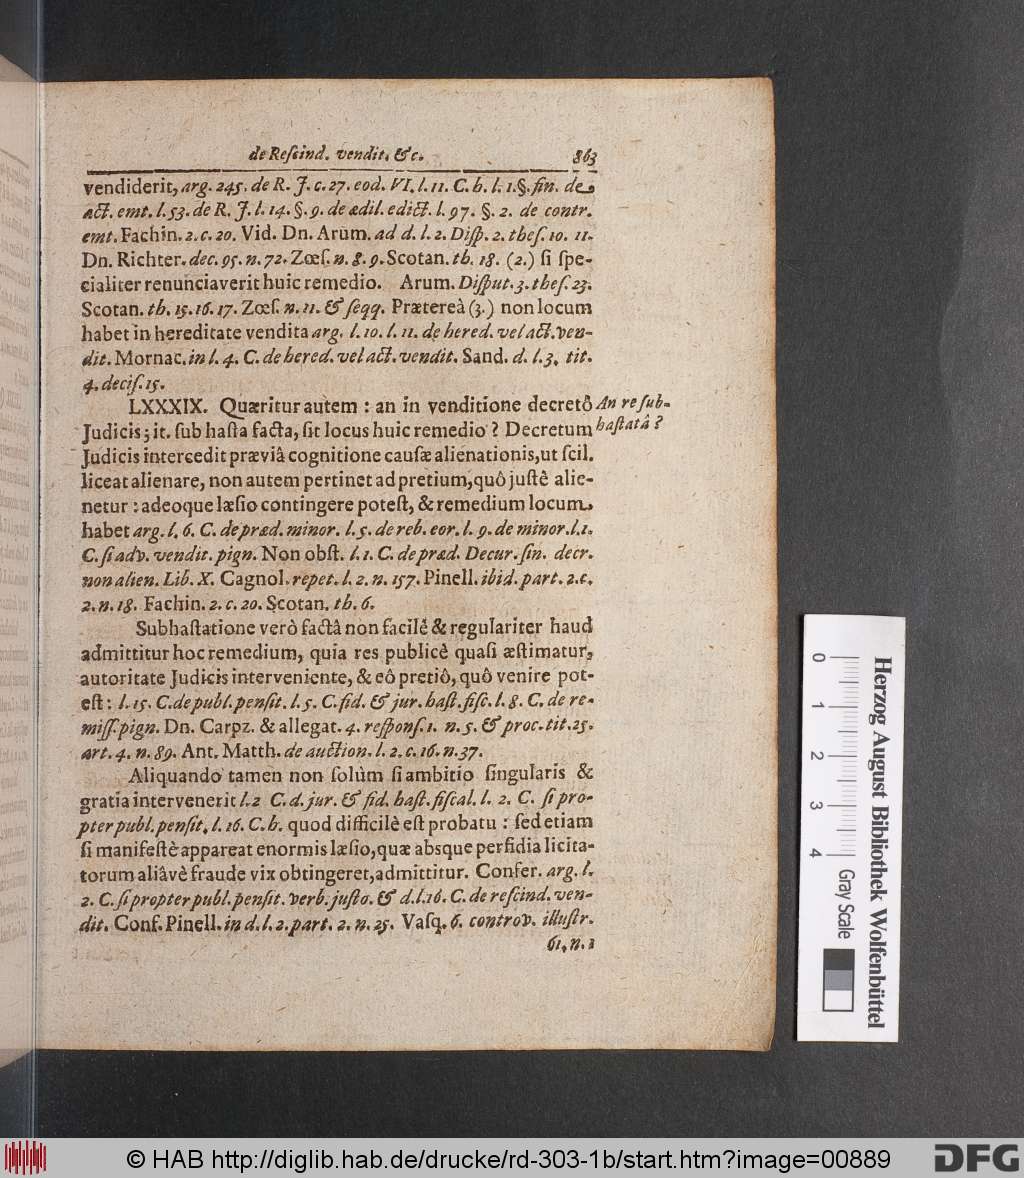 de Reſcind. vendit. &c. 863
vendiderit, arg. 245. de R. J. c. 27. eod. VI. l. 11. C. h. l. 1. §. fin. de
act. emt. l. 53. de R. J. l. 14. §. 9. de ædil. edict. l. 97. §. 2. de contr.
emt. Fachin. 2. c. 20. Vid. Dn. Arum. ad d. l. 2. Diſp. 2. theſ. 10. 11.
Dn. Richter. dec. 95. n. 72. Zœſ. n. 8. 9. Scotan. th. 18. (2.) ſi ſpe-
cialiter renunciaverit huic remedio. Arum. Diſput. 3. theſ. 23.
Scotan. th. 15. 16. 17. Zœſ. n. 11. & ſeqq. Prætereà (3.) non locum
habet in hereditate vendita arg. l. 10. l. 11. de hered. vel act. ven-
dit. Mornac. in l. 4. C. de hered. vel act. vendit. Sand. d. l. 3. tit.
4. deciſ. 15.
LXXXIX. Quæritur autem : an in venditione decretô
An re ſub-
haſtatâ ?
Judicis; it. ſub haſta facta, ſit locus huic remedio ? Decretum
Judicis intercedit præviâ cognitione cauſæ alienationis, ut ſcil.
liceat alienare, non autem pertinet ad pretium, quô juſtè alie-
netur : adeoque læſio contingere poteſt, & remedium locum
habet arg. l. 6. C. de præd. minor. l. 5. de reb. eor. l. 9. de minor. l. 1.
C. ſi adv. vendit. pign. Non obſt. l. 1. C. de præd. Decur. ſin. decr.
non alien. Lib. X. Cagnol. repet. l. 2. n. 157. Pinell. ibid. part. 2. c.
2. n. 18. Fachin. 2. c. 20. Scotan. th. 6.
Subhaſtatione verò factâ non facilè & regulariter haud
admittitur hoc remedium, quia res publicè quaſi æſtimatur,
autoritate Judicis interveniente, & eô pretiô, quô venire pot-
eſt : l. 15. C. de publ. penſit. l. 5. C. fid. & jur. haſt. fiſc. l. 8. C. de re-
miſſ. pign. Dn. Carpz. & allegat. 4. reſponſ. 1. n. 5. & proc. tit. 25.
art. 4. n. 89. Ant. Matth. de auction. l. 2. c. 16. n. 37.
Aliquando tamen non ſolùm ſi ambitio ſingularis &
gratia intervenerit l. 2 C. d. jur. & fid. haſt. fiſcal. l. 2. C. ſi pro-
pter publ. penſit. l. 16. C. h. quod difficilè eſt probatu : ſed etiam
ſi manifeſtè appareat enormis læſio, quæ absque perfidia licita-
torum aliâvè fraude vix obtingeret, admittitur. Confer. arg. l.
2. C. ſi propter publ. penſit. verb. juſto. & d. l. 16. C. de reſcind. ven-
dit. Conf. Pinell. in d. l. 2. part. 2. n. 25. Vaſq. 6. controv. illuſtr.
61, n. 1
0 1 2 3 4
Gray Scale
Herzog August Bibliothek Wolfenbüttel
© HAB http://diglib.hab.de/drucke/rd-303-1b/start.htm?image=00889
DFG